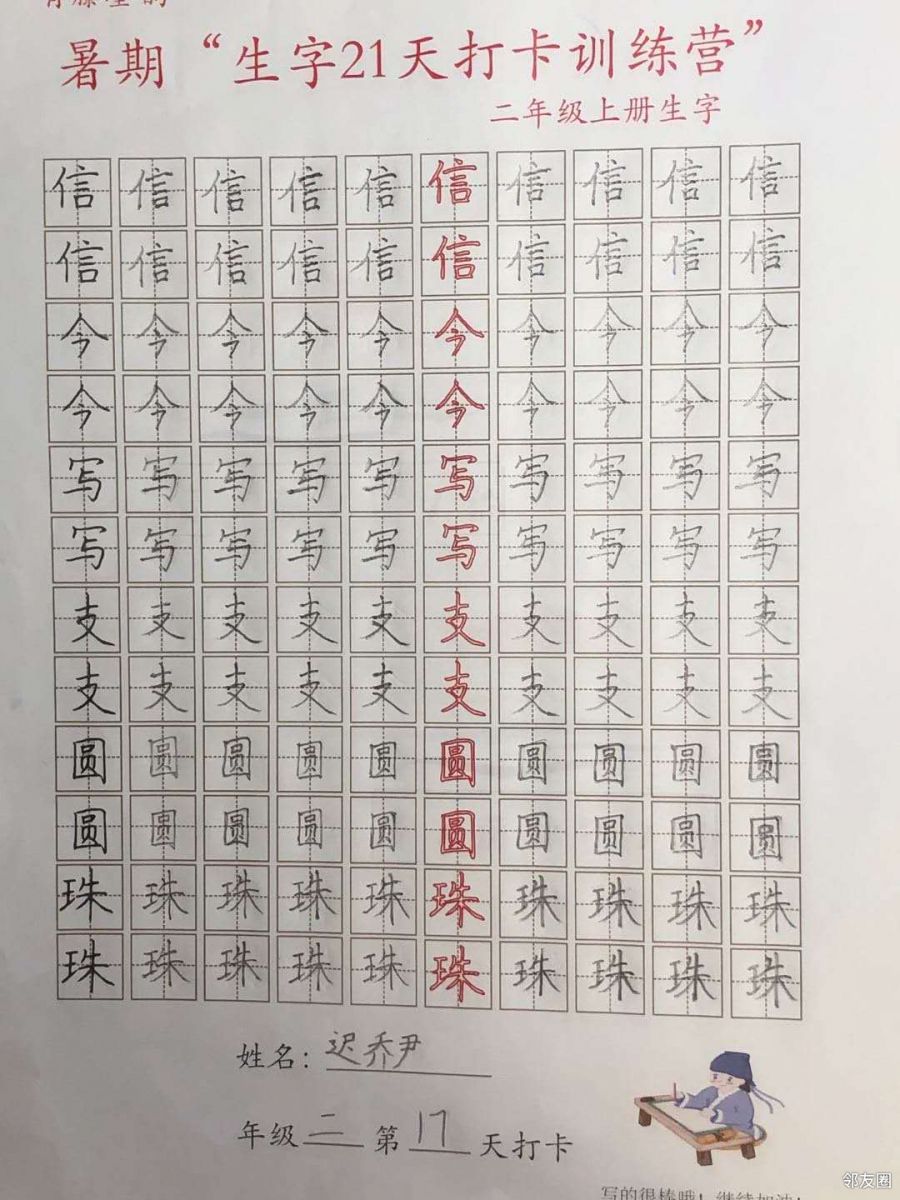 暑期“生字21天打卡训练营”
二年级上册生字
信信信信信信信信信信
信信信信信信信信信信
今今今今今今今今今今
今今今今今今今今今今
写写写写写写写写写写
写写写写写写写写写写
支支支支支支支支支支
支支支支支支支支支支
圆圆圆圆圆圆圆圆圆圆
圆圆圆圆圆圆圆圆圆圆
珠珠珠珠珠珠珠珠珠珠
珠珠珠珠珠珠珠珠珠珠
姓名：迟乔尹
年级二第17天打卡
写的很棒哦！继续加油！
邻友圈